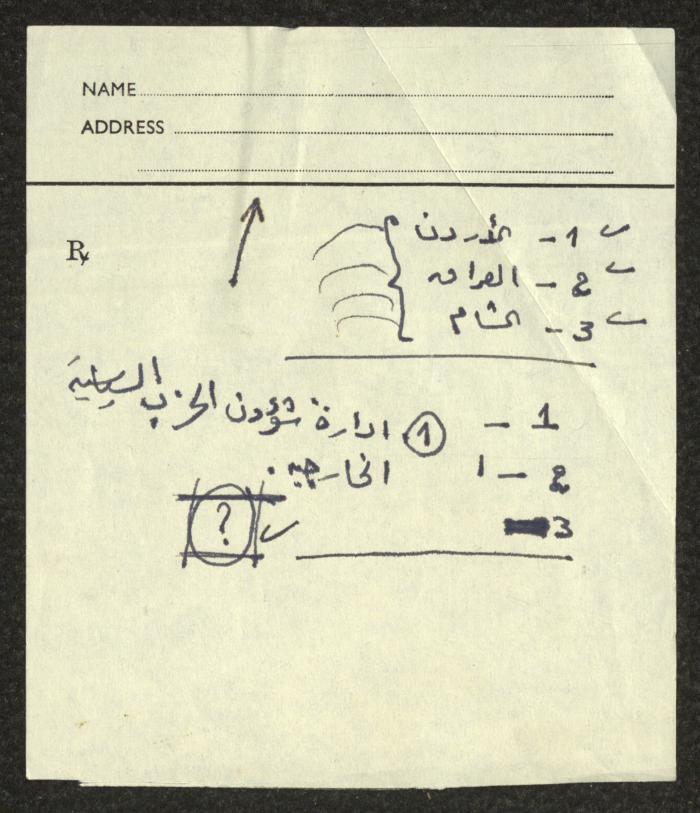 NAME
ADDRESS
℞
1 - الأردن
2 - العراق
3 - الشام
1 - ① ادارة شؤون الحزب السياسية
2 - ا الخارجية.
3
?